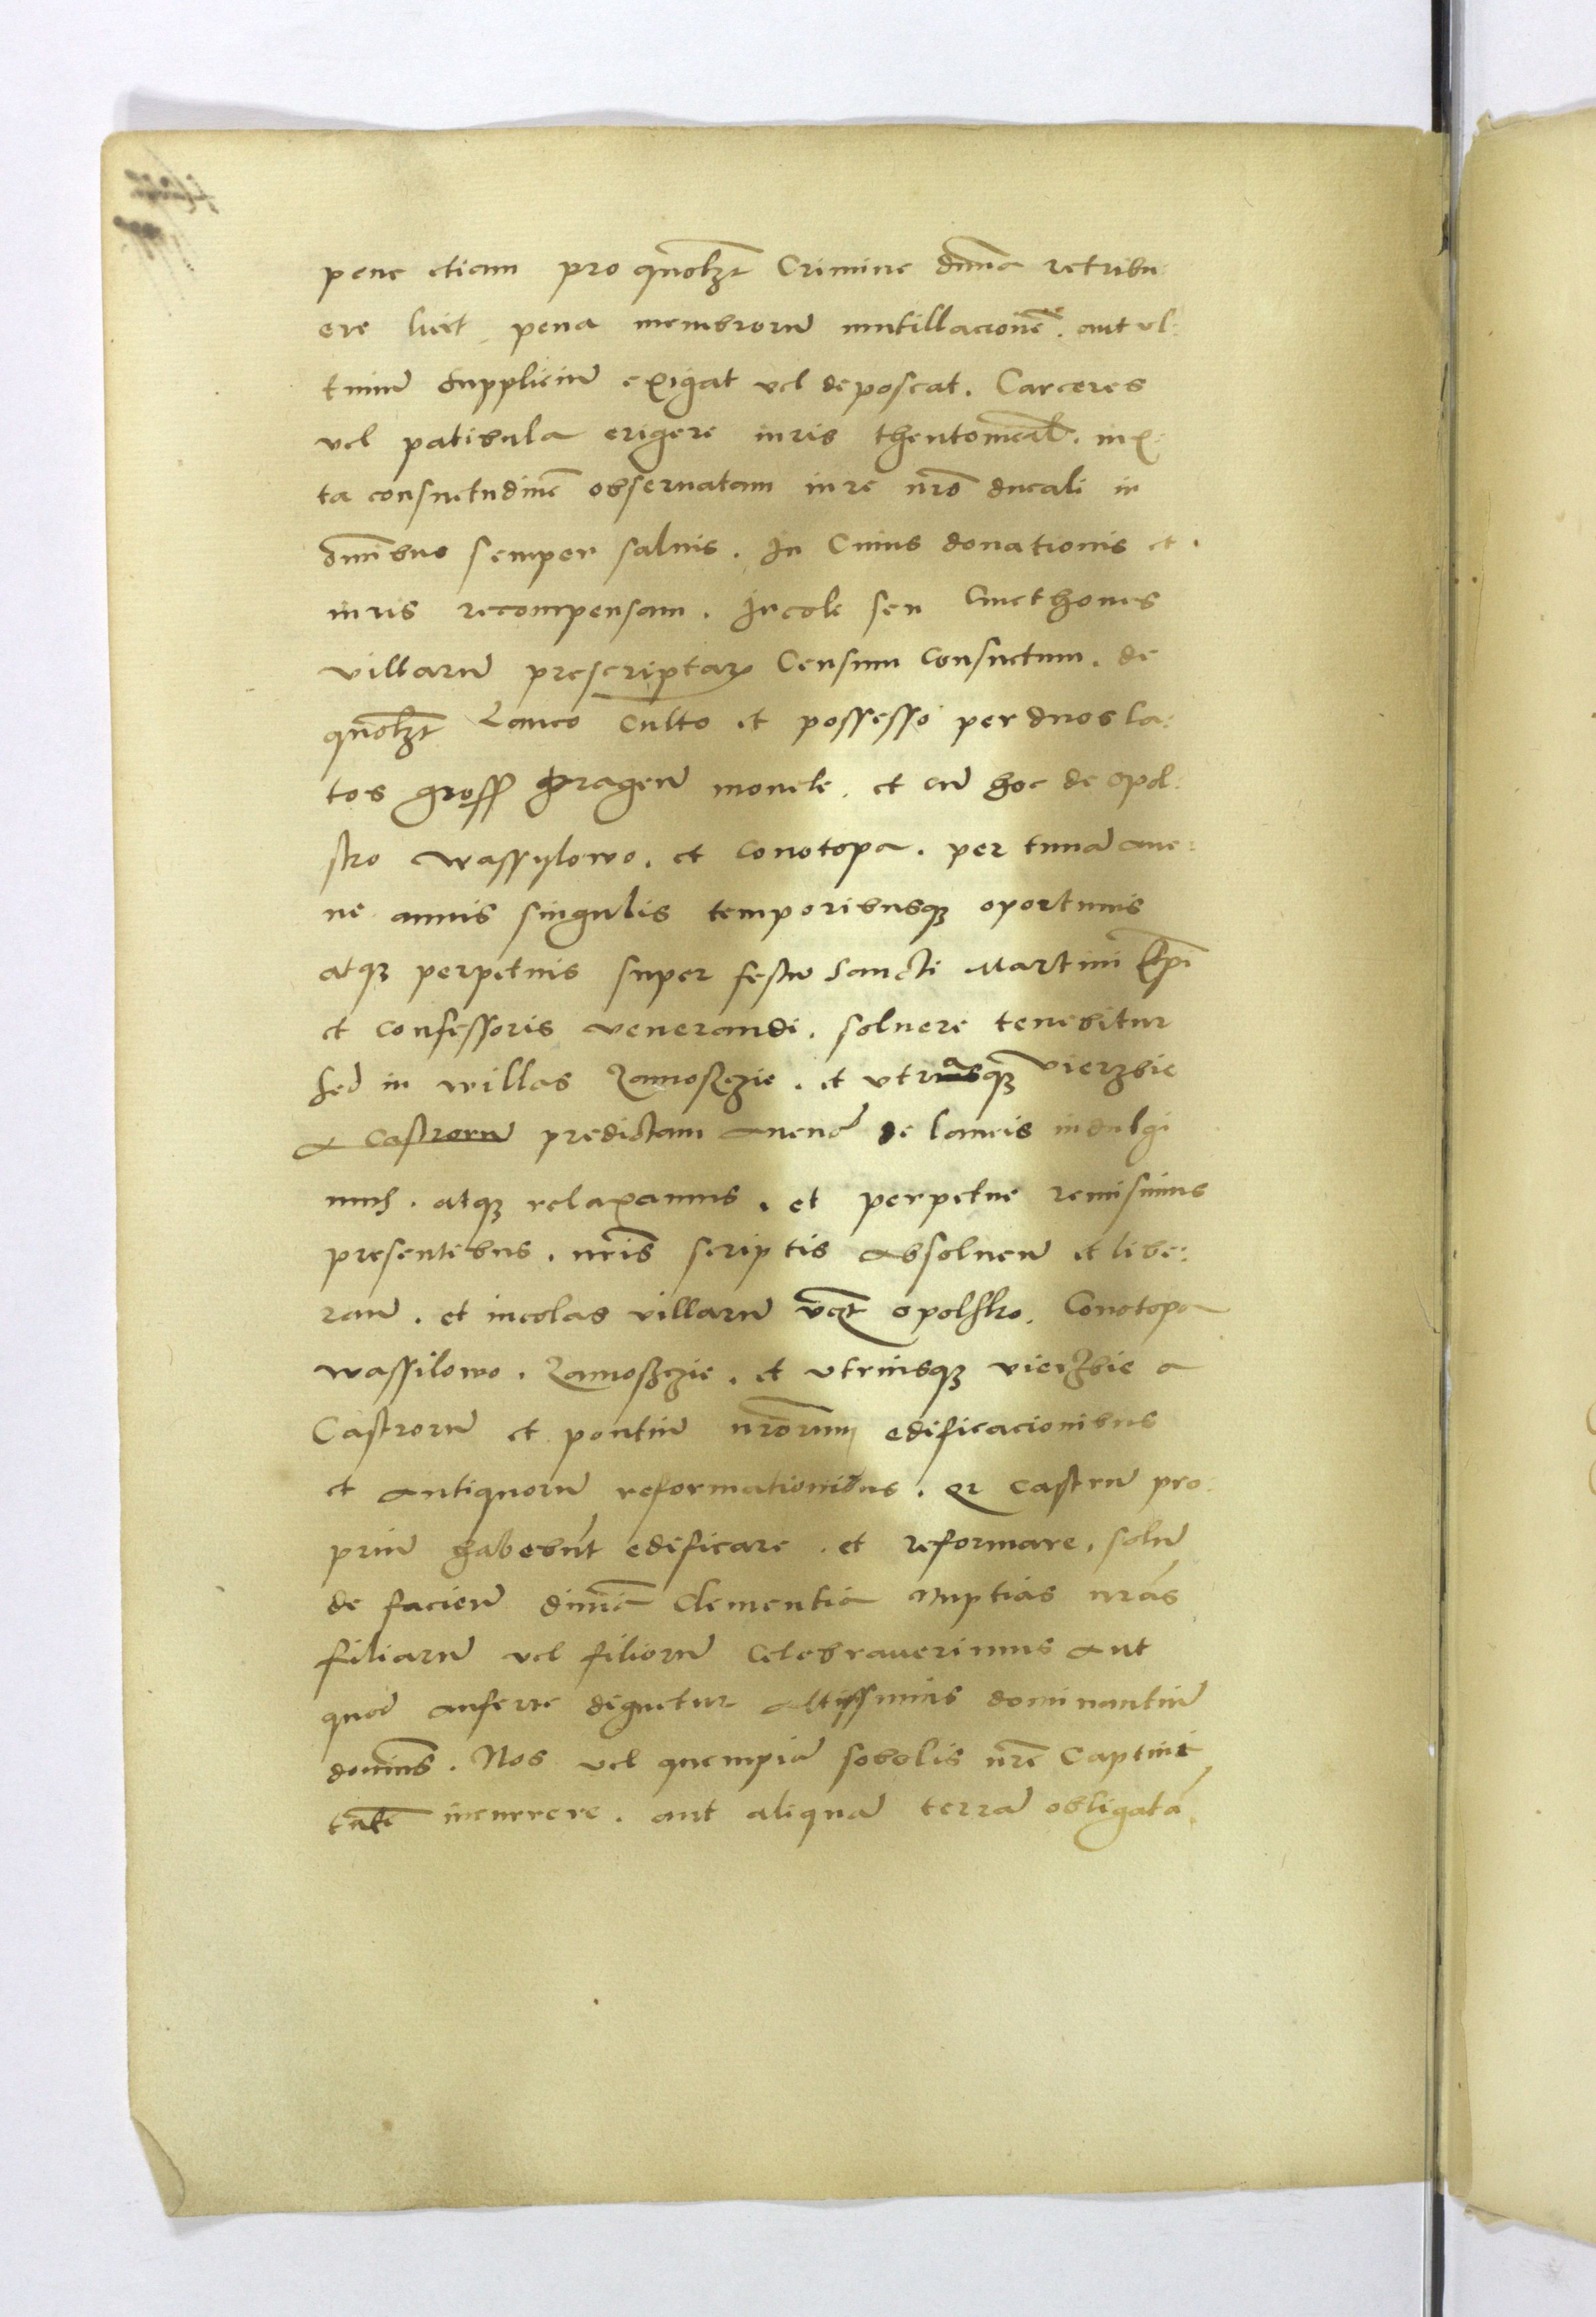 pene etiam pro quolz̄t Crimine dīīna retribu:
ere licet pena membrorū mutillacionē. aut ul:
timū Suppliciū exigat vel deposcat. Carceres
vel patibula erigere iuris theutonicāl. iux:
ta consuetudinē obseruatam iure nr̄o ducali in
om̄ibus semper saluis. In Cuius donationis et.
iuris recompensam. Incole seu Cmethones
villarū prescriptar̄ Censum consuetum. de
quolz̄t Laneo Culto et possesso per duos la:
tos gross pragen̄ monete. et cū hoc de opol:
sko wassylowo. et conotopa. per tunā aue:
ne annis singulis temporibusqȝ oportunis
atqȝ perpetuis super festū Sancti Martini Ep̄i
et confessoris venerandi. soluere tenebitur
Sed in willas Zamosczie. et vtrasqȝ vierzbie
a castrorū predictam auenā de laneis indulgi
mus. atqȝ relaxamus. et perpetue remisimus
presentibus. nr̄is scriptis absoluen̄ et libe:
ran̄. et incolas villarū vcz̄t opolsko. Conotopa
wassilowo. Zamosczie. et vtriusqȝ vierzbie a
Castrorū et pontiū nr̄orum edificacionibus
et antiquorū reformationibus. qr castrū pro:
priū habebūt edificare. et reformare. solū
de facien̄ diuīa Clementia Nuptias nr̄as
filiarū vel filiorū celebrauerimus aut
quod auferre dignetur altissimus dominantiū
domin̄s. Nos vel quempiā sobolis nr̄e Captiui
tatē incurrere. aut aliquā terrā obligatā